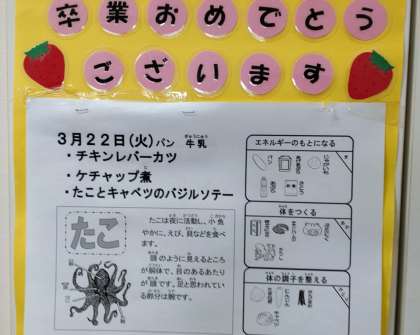 卒業おめでとう
ございます
3月22日(火)パン 牛乳
・チキンレバーカツ
・ケチャップ煮
・たことキャベツのバジルソテー
たこ
たこは夜に活動し、小魚
やかに、えび、貝などを食べ
ます。
頭のように見えるところ
が胴体で、目のあるあたり
が頭です。足と思われてい
る部分は腕です。
エネルギーのもとになる
体をつくる
体の調子を整える